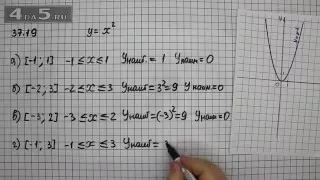 4DA5.RU
37.19 y = x²
а) [-1; 1] -1 ≤ x ≤ 1 Yнаиб = 1 Yнаим = 0
б) [-2; 3] -2 ≤ x ≤ 3 Yнаиб = 3² = 9 Yнаим = 0
в) [-3; 2] -3 ≤ x ≤ 2 Yнаиб = (-3)² = 9 Yнаим = 0
г) [-1; 3] -1 ≤ x ≤ 3 Yнаиб =